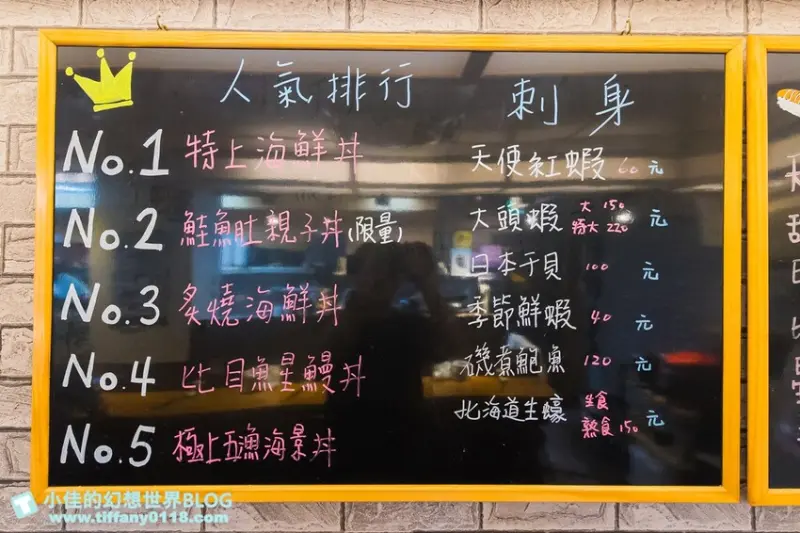 人氣排行
No.1 特上海鮮丼
No.2 鮭魚肚親子丼(限量)
No.3 炙燒海鮮丼
No.4 比目魚星鰻丼
No.5 極上五漁海景丼
刺身
天使紅蝦 60 元
大頭蝦 大 150 特大 220 元
日本干貝 100 元
季節鮮蝦 40 元
磯煮鮑魚 120 元
北海道生蠔 生食 熟食 150 元
小佳的幻想世界BLOG
www.tiffany0118.com